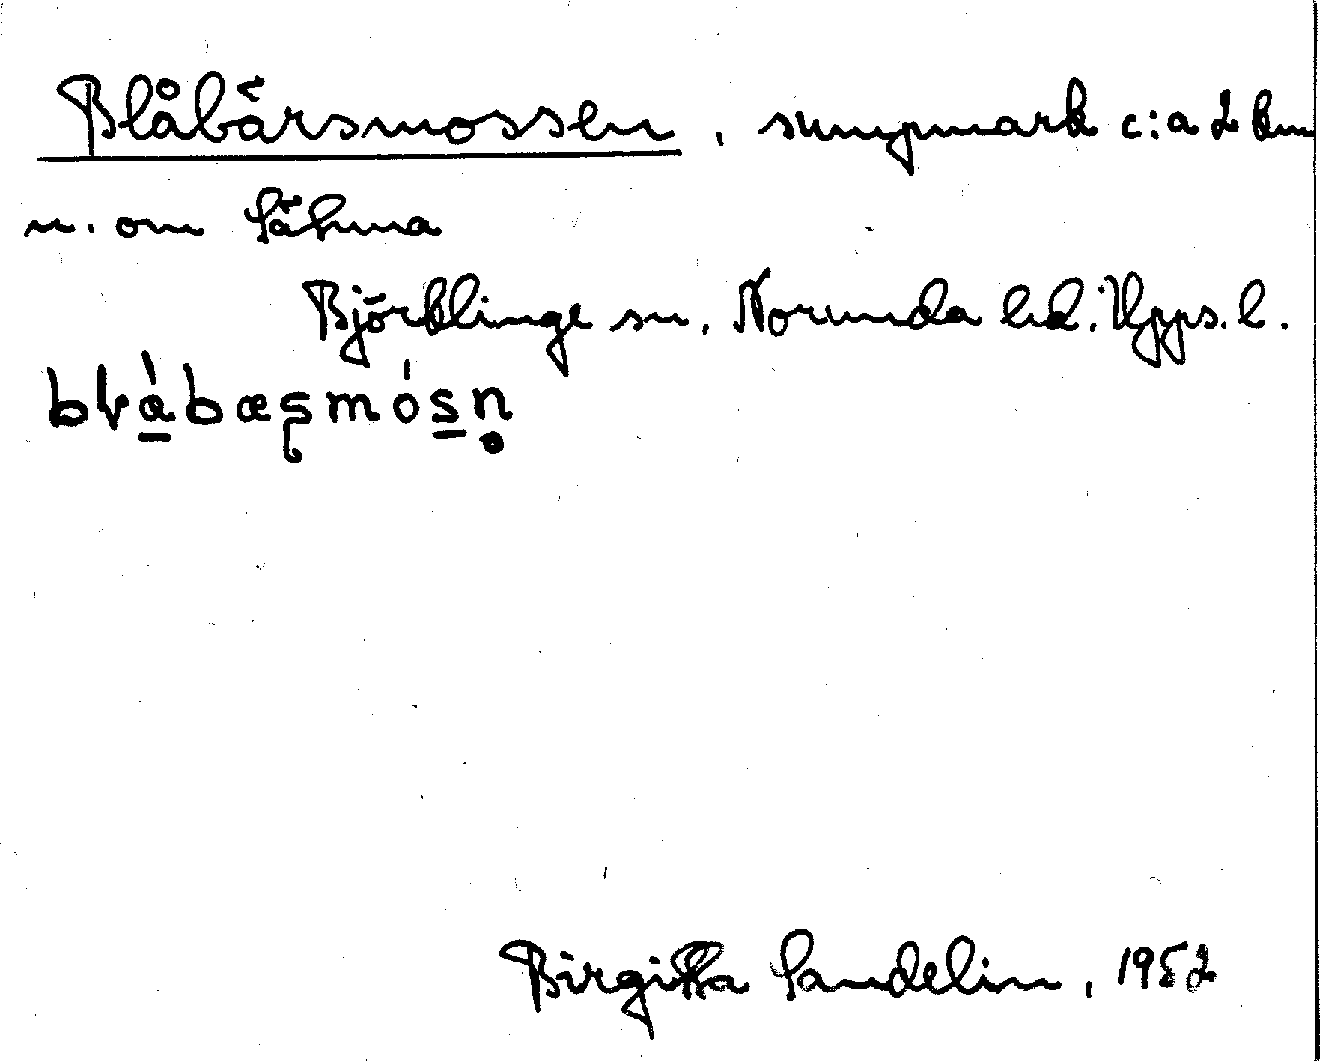 Blåbärsmossen, sumpmark c:a 2 km
n. om Sähma
Björklinge sn, Norunda hd. Upps. l.
Birgitta Sandelin, 1952